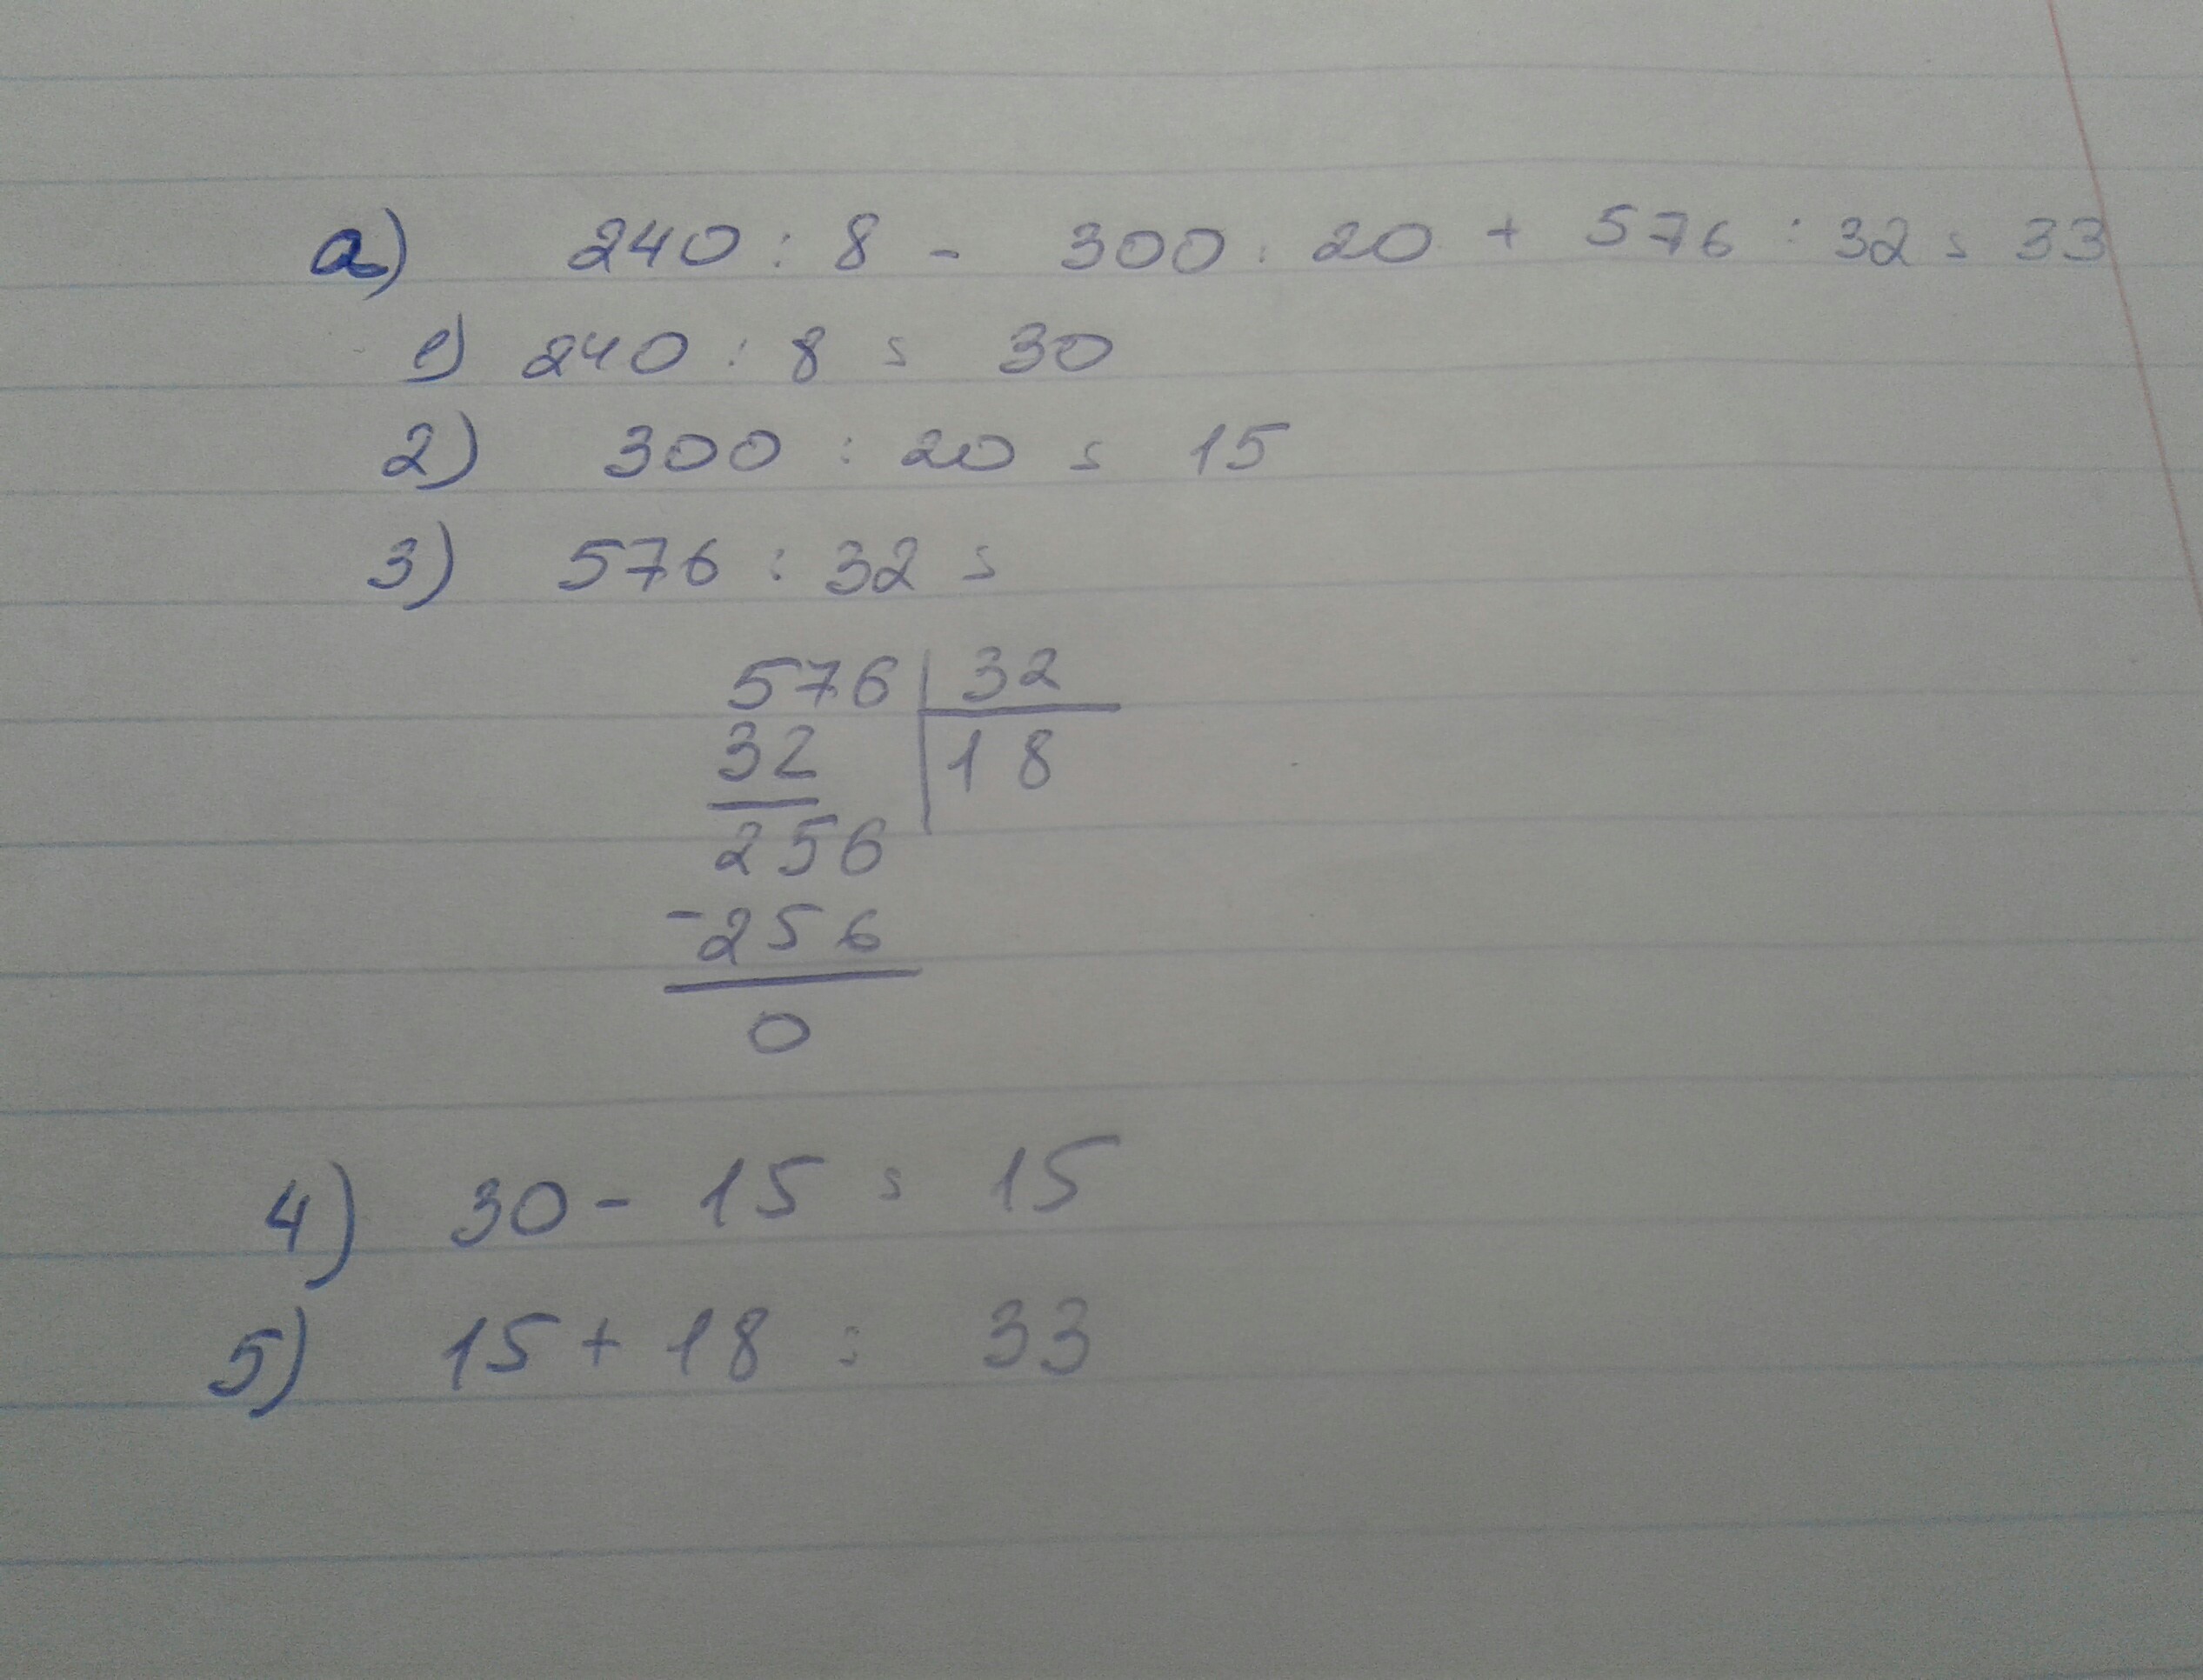 а) 240 : 8 - 300 : 20 + 576 : 32 = 33
1) 240 : 8 = 30
2) 300 : 20 = 15
3) 576 : 32 =
576 | 32
32 | 18
256
-256
0
4) 30 - 15 = 15
5) 15 + 18 = 33